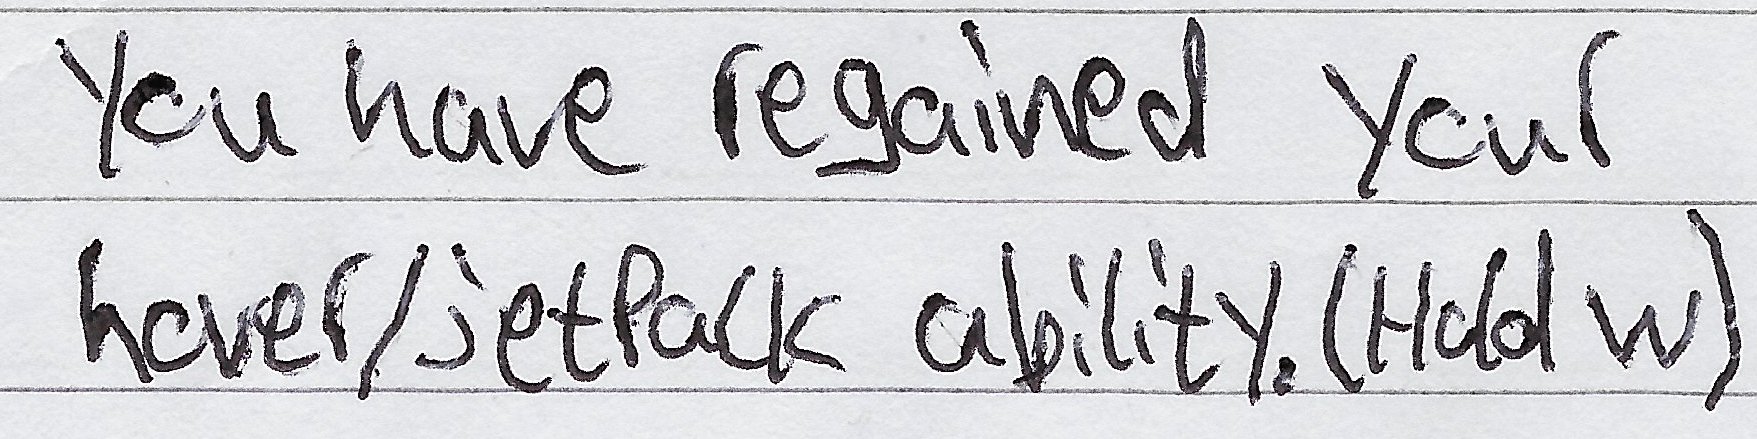 You have regained your
hover/jetpack ability. (Hold W)